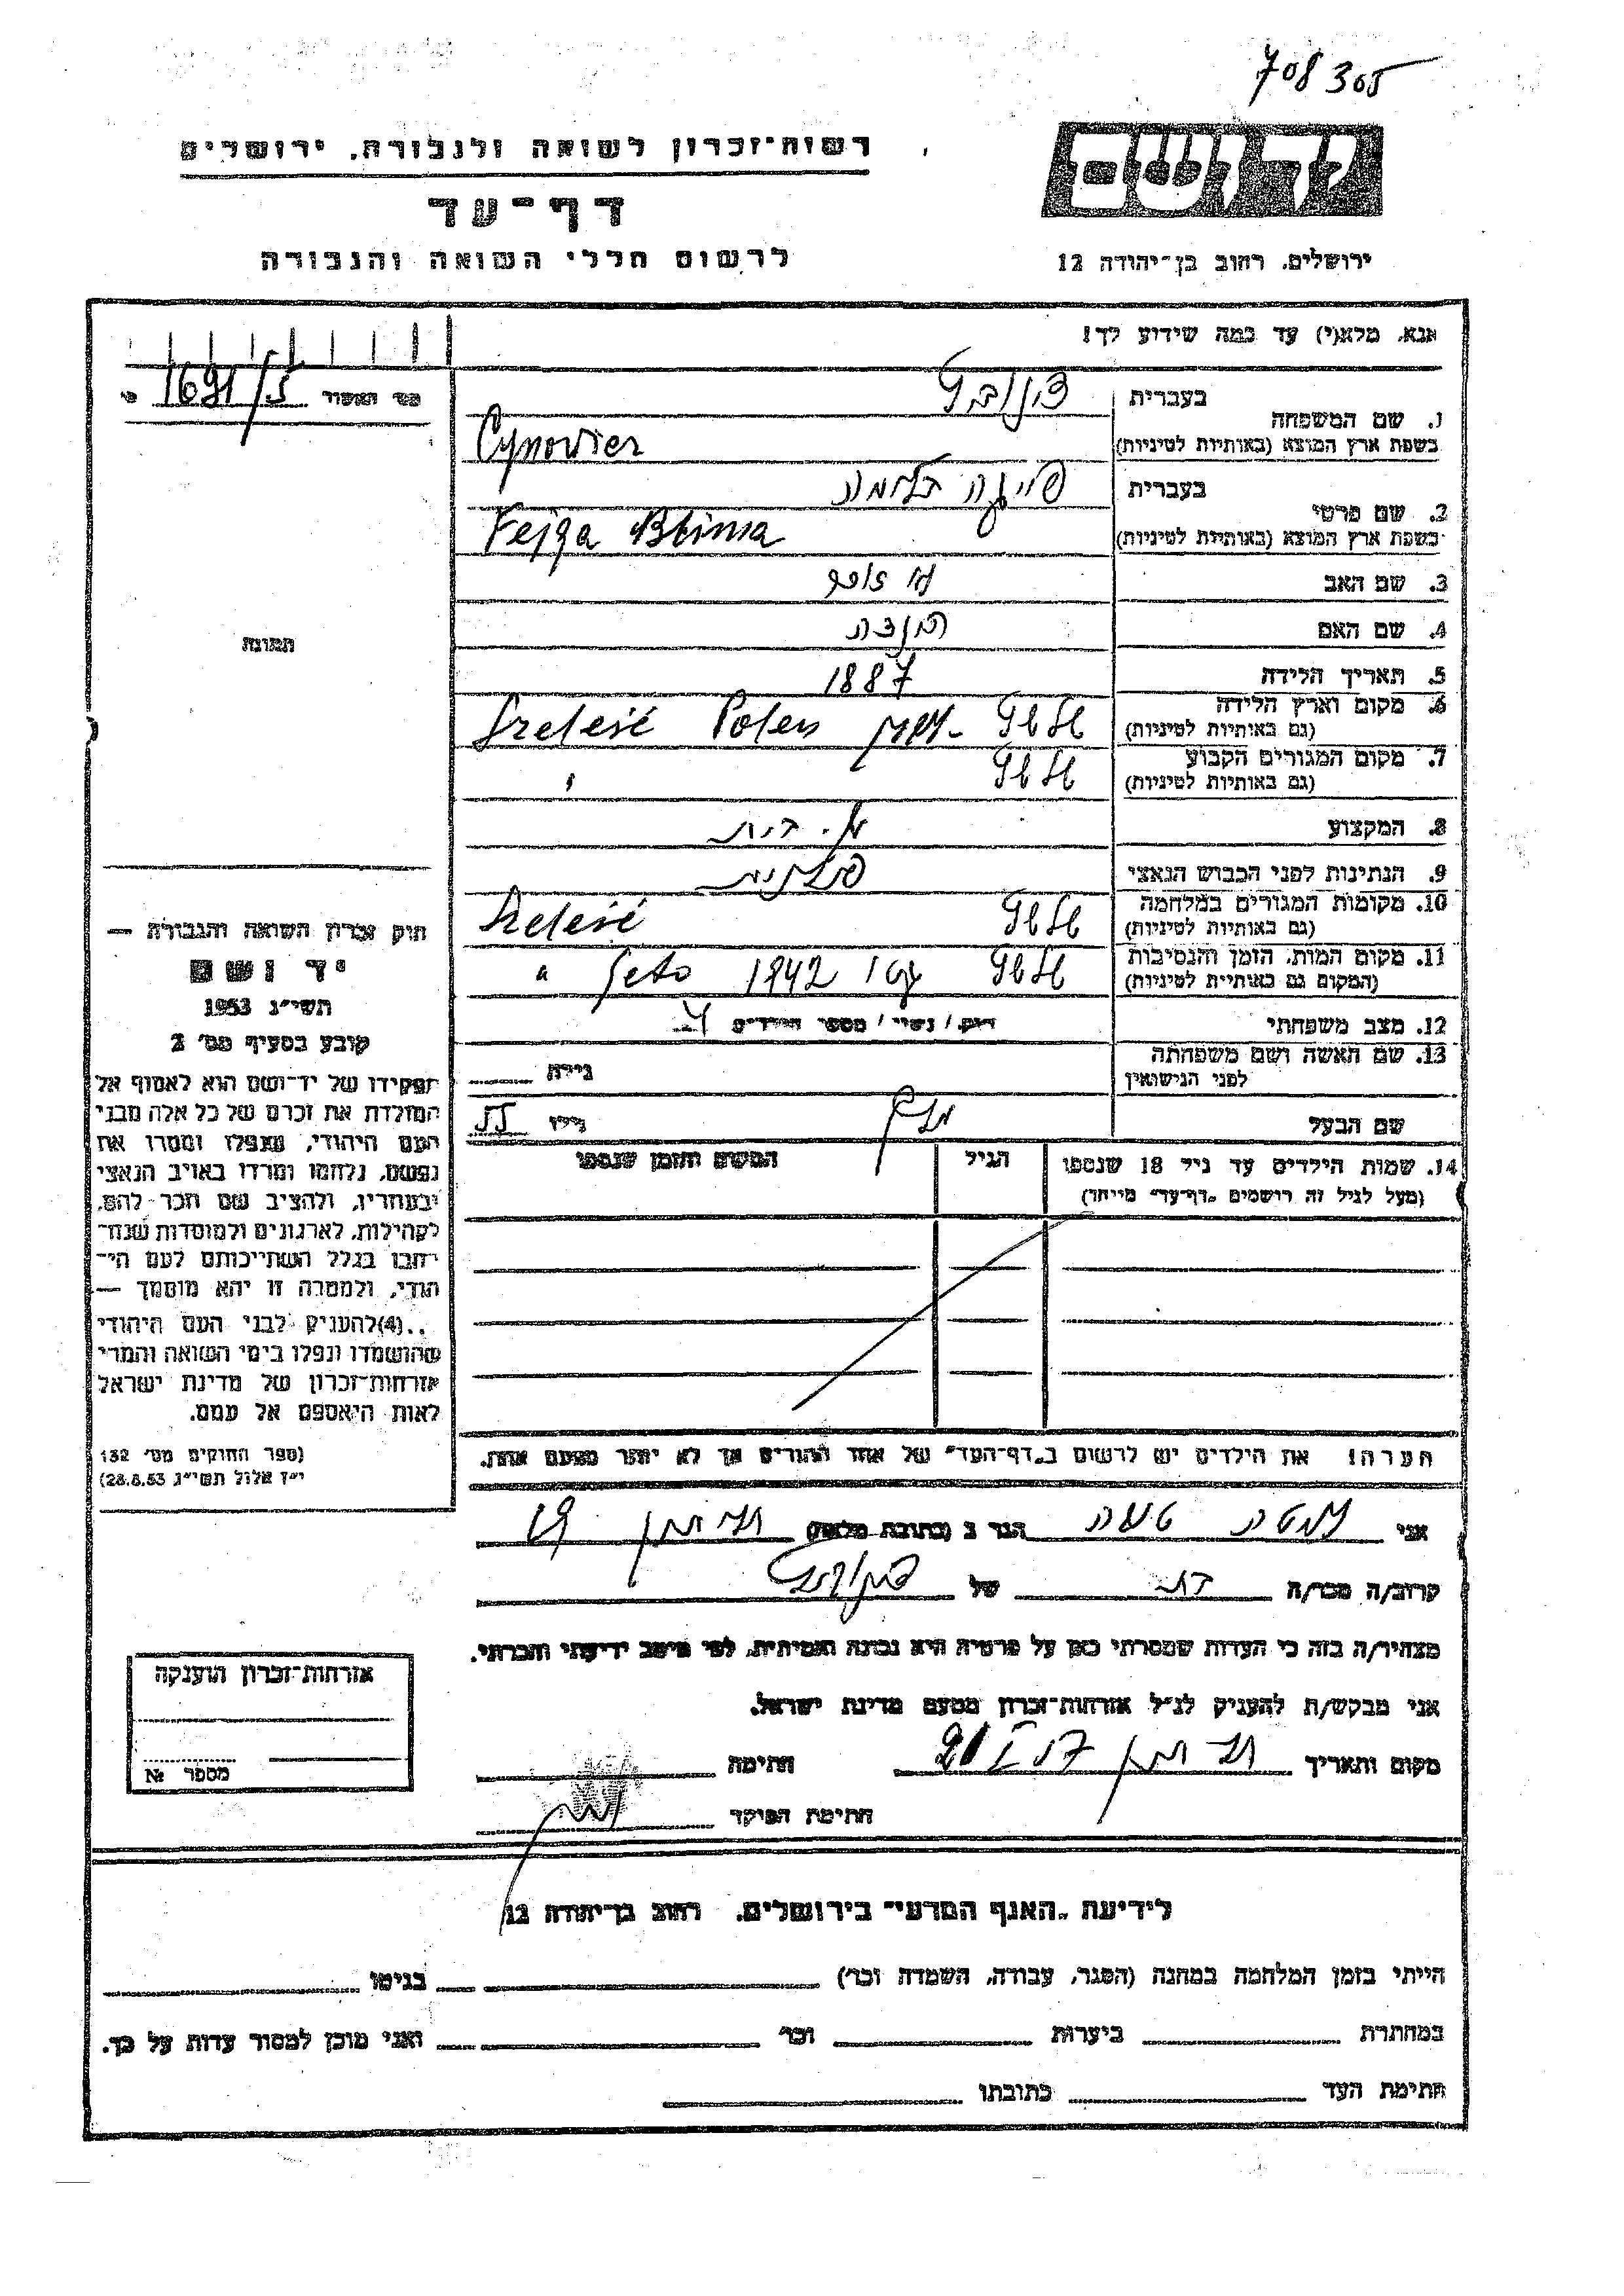 708305
רשות-זכרון לשואה ולגבורה, ירושלים
דף-עד
לרשום חללי השואה והגבורה
ידושם
ירושלים, רחוב בן-יהודה 12
אנא, מלא(י) עד כמה שידוע לך!
1691/5
1. שם המשפחה
בעברית
בשפת ארץ המוצא (באותיות לטיניות)
Cynowier
2. שם פרטי
בעברית
בשפת ארץ המוצא (באותיות לטיניות)
Fejga Blima
3. שם האב
4. שם האם
5. תאריך הלידה 1887
6. מקום וארץ הלידה
(גם באותיות לטיניות) Polen
7. מקום המגורים הקבוע
(גם באותיות לטיניות)
8. המקצוע ע. בית
9. הנתינות לפני הכבוש הנאצי פולנית
10. מקומות המגורים במלחמה
(גם באותיות לטיניות)
11. מקום המות, הזמן והנסיבות
(המקום גם באותיות לטיניות) גטו 1942 Geto "
12. מצב משפחתי רווק / נשוי / מספר הילדים
13. שם האשה ושם משפחתה
לפני הנישואין
גילה
שם הבעל גילו 55
14. שמות הילדים עד גיל 18 שנספו
(מעל לגיל זה רושמים "דף-עד" מיוחד)
הגיל
המקום והזמן שנספו
הערה! את הילדים יש לרשום ב"דף-העד" של אחד ההורים אך לא יותר מפעם אחת.
תמונה
חוק זכרון השואה והגבורה —
יד ושם
תשי"ג 1953
קובע בסעיף מס' 2
תפקידו של יד-ושם הוא לאסוף אל
המולדת את זכרם של כל אלה מבני
העם היהודי, שנפלו ומסרו את
נפשם, נלחמו ומרדו באויב הנאצי
ובעוזריו, ולהציב שם וזכר להם,
לקהילות, לארגונים ולמוסדות שנח-
רבו בגלל השתייכותם לעם הי-
הודי, ולמטרה זו יהא מוסמך —
..(4)להעניק לבני העם היהודי
שהושמדו ונפלו בימי השואה והמרי
אזרחות-זכרון של מדינת ישראל
לאות היאספם אל עמם.
(ספר החוקים מס' 132
י"ז אלול תשי"ג, 28.8.53)
אני הגר ב (כתובת מלאה)
קרוב/ה מכר/ה בת של
מצהיר/ה בזה כי העדות שמסרתי כאן על פרטיה היא נכונה ואמיתית, לפי מיטב ידיעתי והכרתי.
אני מבקש/ת להעניק לנ"ל אזרחות-זכרון מטעם מדינת ישראל.
מקום ותאריך חתימה
חתימת הפוקד
אזרחות-זכרון הוענקה
מספר №
לידיעת "האגף המדעי" בירושלים, רחוב בן-יהודה 12
הייתי בזמן המלחמה במחנה (הסגר, עבודה, השמדה וכו') בגיטו
במחתרת ביערות וכו' ואני מוכן למסור עדות על כך.
חתימת העד כתובתו